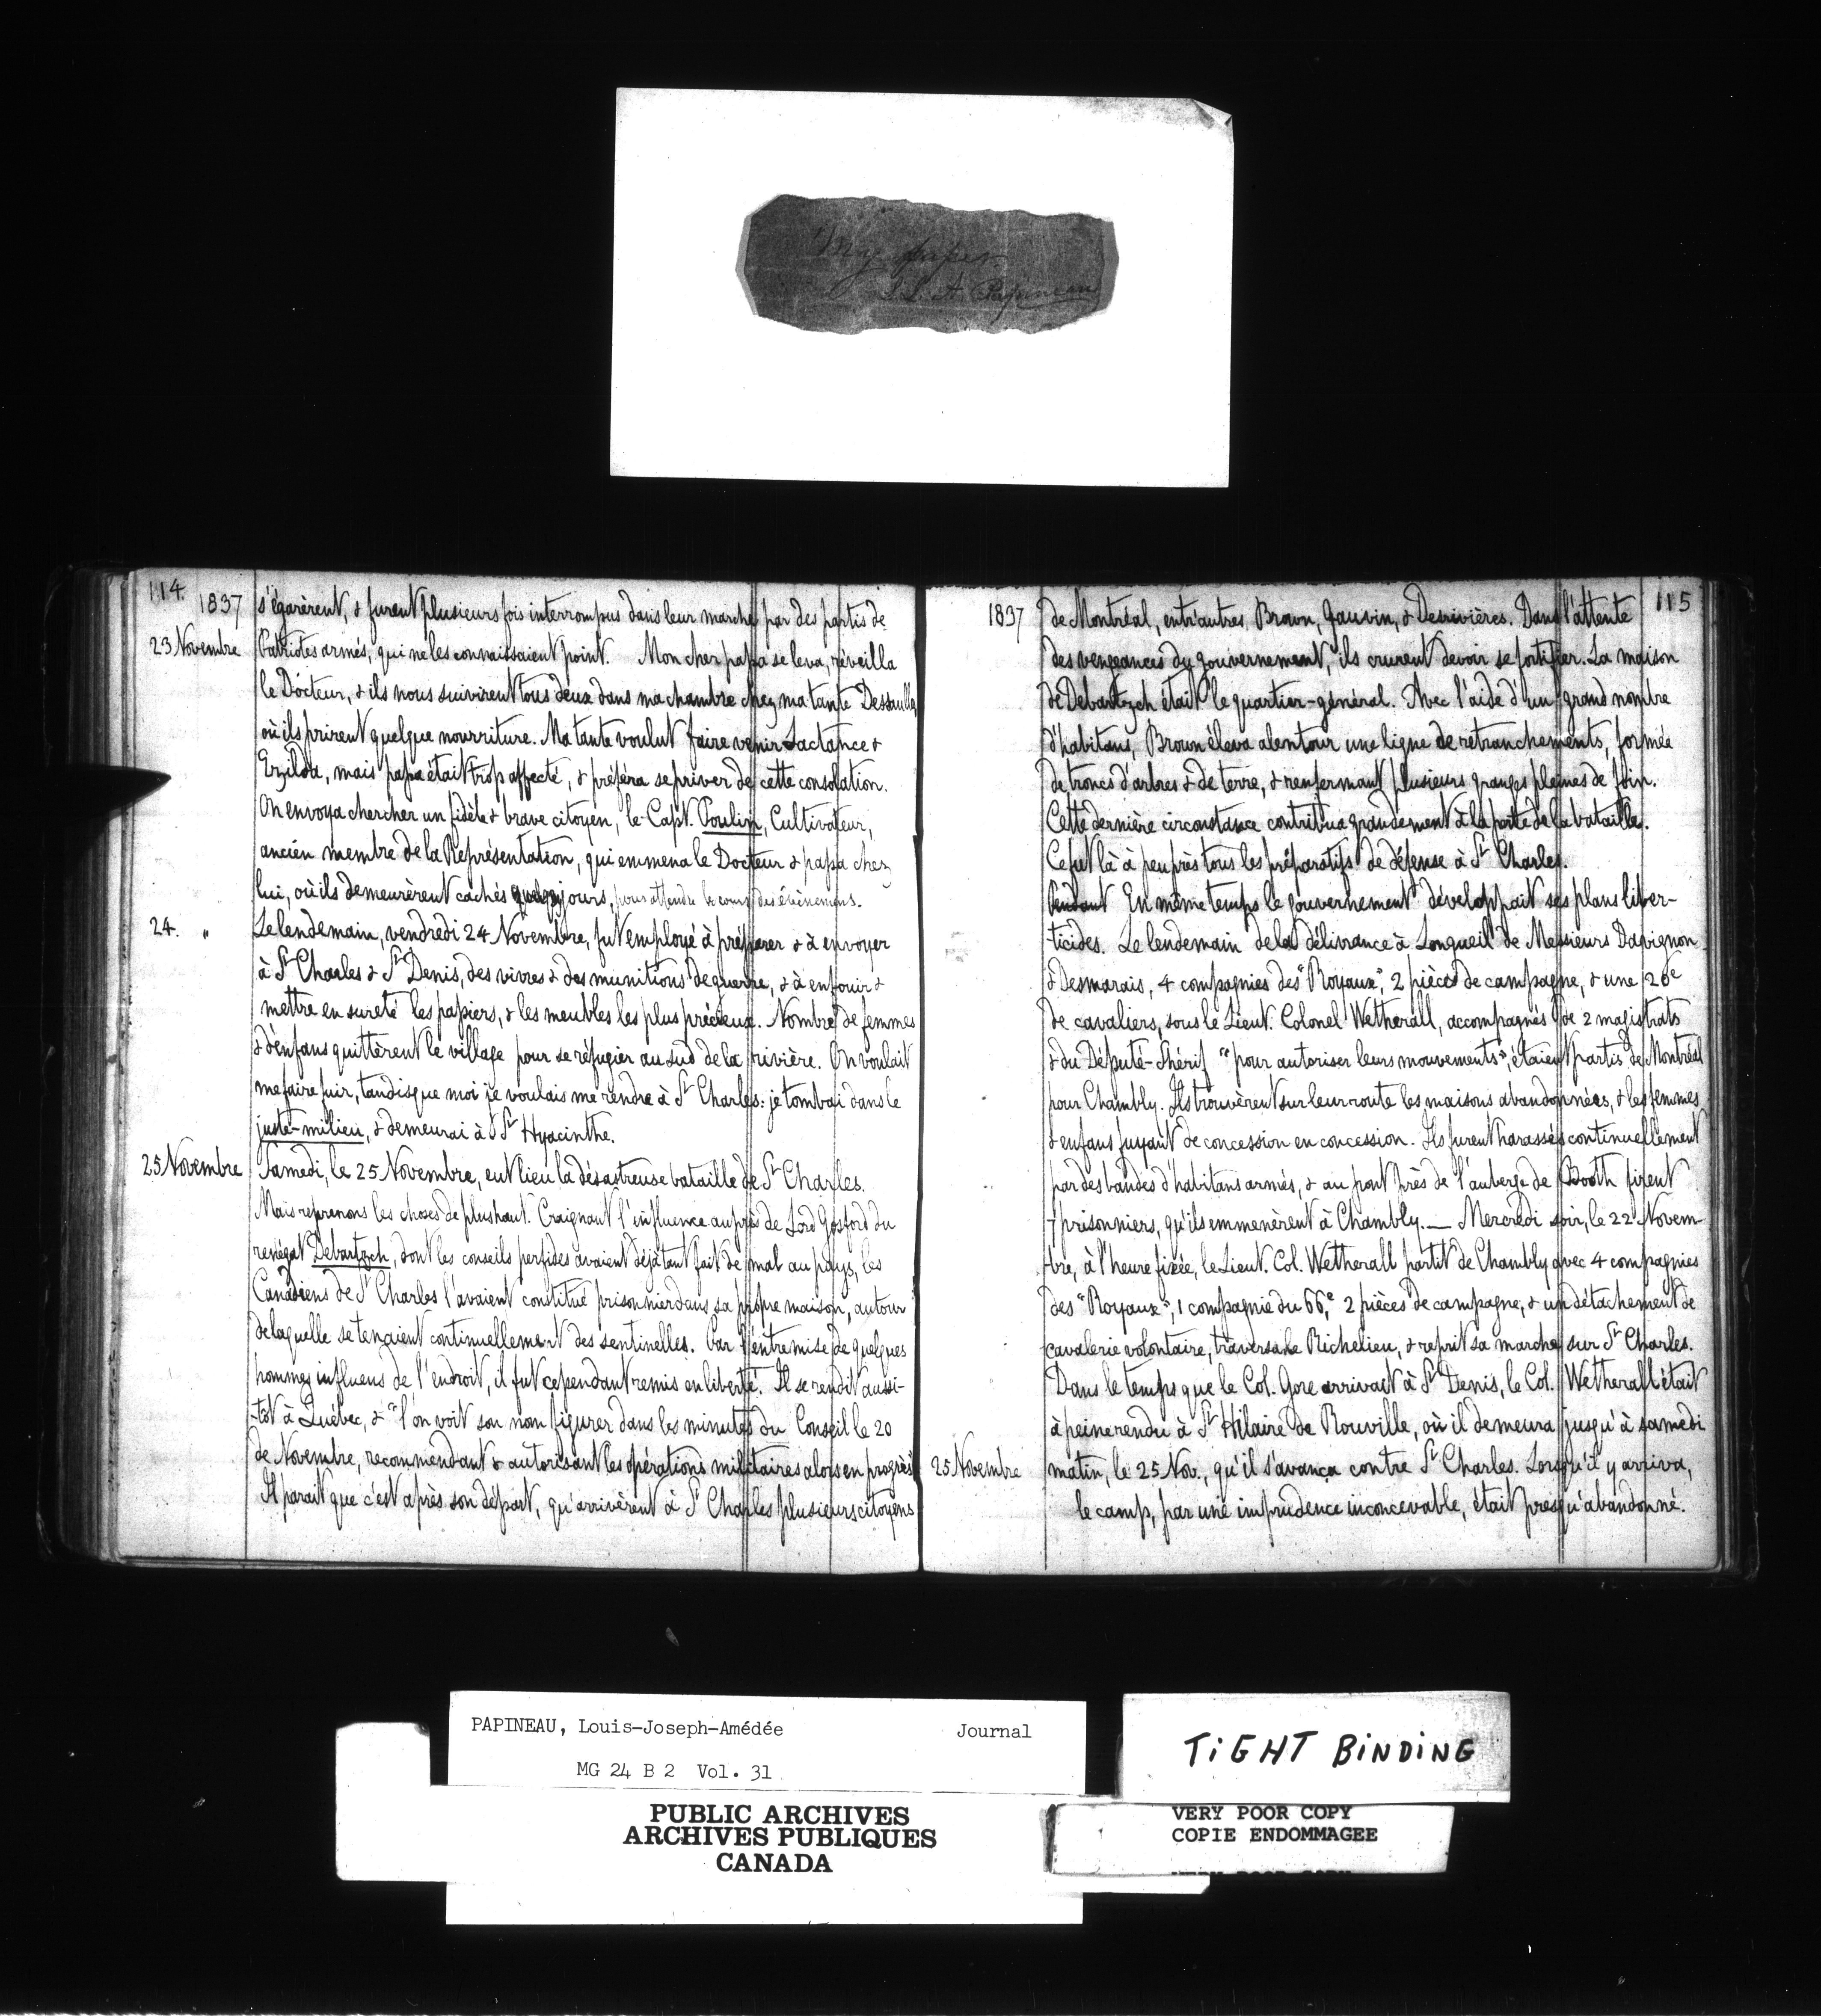 My paper
L. J. A. Papineau
114.
1837
s'égarèrent, & furent plusieurs fois interrompus dans leur marche par des partis de
23 Novembre
Patriotes armés, qui ne les connaissaient point. Mon cher papa se leva, réveilla
le Docteur, & ils nous suivirent tous deux dans ma chambre chez ma tante Dessaulles,
où ils prirent quelque nourriture. Ma tante voulut faire venir Lactance &
Ezilda, mais papa était trop affecté, & préféra se priver de cette consolation.
On envoya chercher un fidèle & brave citoyen, le Capt. Poulin, Cultivateur,
ancien membre de la Représentation, qui emmena le Docteur & papa chez
lui, où ils demeurèrent cachés quelques jours, pour attendre le cours des évènemens.
24. "
Le lendemain, vendredi 24 Novembre, fut employé à préparer & à envoyer
à St Charles & St Denis, des vivres & des munitions de guerre, & à enfouir &
mettre en sureté les papiers, & les meubles les plus précieux. Nombre de femmes
& d'enfans quittèrent le village pour se réfugier au sud de la rivière. On voulait
me faire fuir, tandisque moi je voulais me rendre à St Charles: je tombai dans le
juste-milieu, & demeurai à St Hyacinthe.
25 Novembre
Samedi, le 25 Novembre, eut lieu la désastreuse bataille de St Charles.
Mais reprenons les choses de plus haut. Craignant l'influence auprès de Lord Gosford du
renégat Debartzch, dont les conseils perfides avaient déjà tant fait de mal au pays, les
Canadiens de St Charles l'avaient constitué prisonnier dans sa propre maison, autour
de laquelle se tenaient continuellement des sentinelles. Par l'entremise de quelques
hommes influens de l'endroit, il fut cependant remis en liberté. Il se rendit aussi-
-tôt à Québec, & "l'on voit son nom figurer dans les minutes du Conseil le 20
de Novembre, recommendant & autorisant les opérations militaires alors en progrès"
Il parait que c'est après son départ, qu'arrivèrent à St Charles plusieurs citoyens
115
1837
de Montréal, entr'autres, Brown, Gauvin, & Desrivières. Dans l'attente
des vengeances du gouvernement, ils crurent devoir se fortifier. La maison
de Debartzch était le quartier-général. Avec l'aide d'un grand nombre
d'habitans, Brown éleva alentour une ligne de retranchements, formée
de troncs d'arbres & de terre, & renfermant plusieurs granges pleines de foin.
Cette dernière circonstance contribua grandement à la perte de la bataille.
Ce fut là à peu près tous les préparatifs de défense à St Charles.
Pendant En même temps le gouvernement développait ses plans liber-
-ticides. Le lendemain de la délivrance à Longueil de Messieurs Davignon
& Desmarais, 4 compagnies des "Royaux", 2 pièces de campagne, & une 20e
de cavaliers, sous le Lieut. Colonel Wetherall, accompagnés de 2 magistrats
& du Député-Shérif "pour autoriser leurs mouvements", étaient partis de Montréal
pour Chambly. Ils trouvèrent sur leur route les maisons abandonnées, & les femmes
& enfans fuyant de concession en concession. Ils furent harassés continuellement
par des bandes d'habitans armés, & au pont près de l'auberge de Booth firent
7 prisonniers, qu'ils emmenèrent à Chambly. — Mercredi soir, le 22 Novem-
-bre, à l'heure fixée, le Lieut. Col. Wetherall partit de Chambly avec 4 compagnies
des "Royaux", 1 compagnie du 66e, 2 pièces de campagne, & un détachement de
cavalerie volontaire, traversa le Richelieu, & reprit sa marche sur St Charles.
Dans le temps que le Col. Gore arrivait à St Denis, le Col. Wetherall était
à peine rendu à St Hilaire de Rouville, où il demeura jusqu'à samedi
25 Novembre
matin, le 25 Nov., qu'il s'avança contre St Charles. Lorsqu'il y arriva,
le camp, par une imprudence inconcevable, était presqu'abandonné.
PAPINEAU, Louis-Joseph-Amédée Journal
MG 24 B 2 Vol. 31
PUBLIC ARCHIVES
ARCHIVES PUBLIQUES
CANADA
TIGHT BINDING
VERY POOR COPY
COPIE ENDOMMAGEE